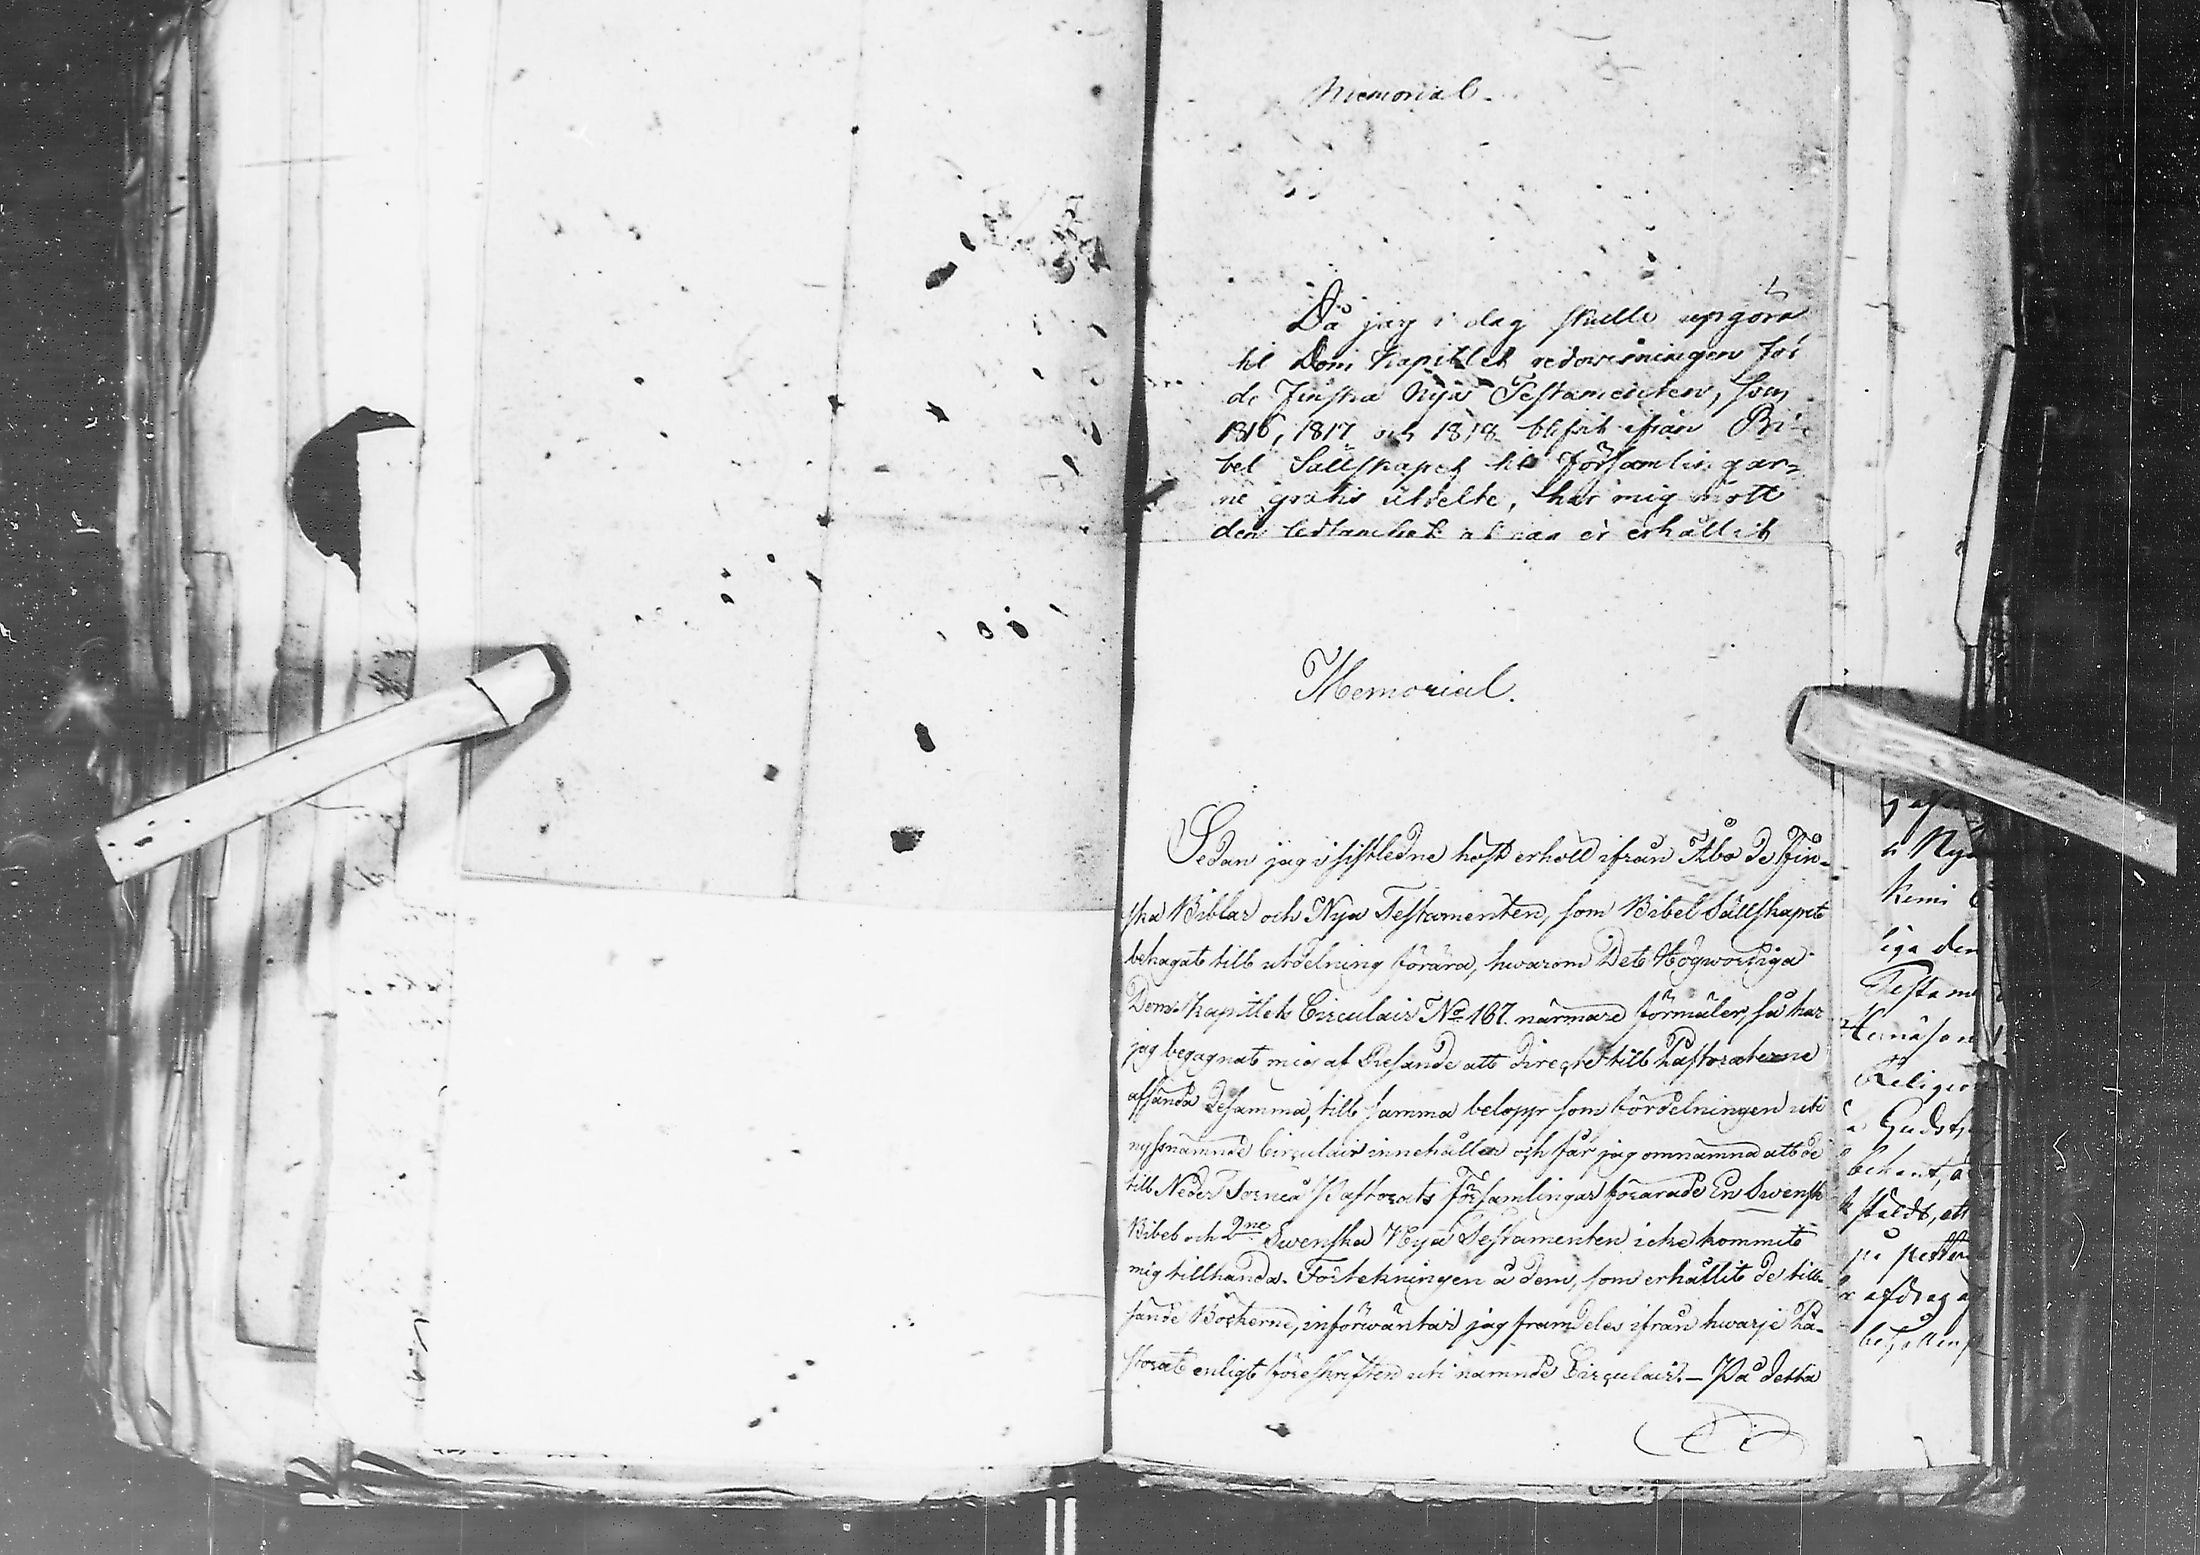 Memorial.
Då jag i dag skulle upgöra
til Dom Kapitlet redovisningen för
de Finska Nya Testamenten, som
1816, 1817 och 1818 blifvit ifrån Bi-
bel Sällskapet til Församlingar-
ne gratis utdelte, har mig mött
den ledsamhet at jag ej erhållit
Memorial.
Sedan jag i sistledne höst erhöll ifrån Åbo de Fin-
ska Biblar och Nya Testamenten, som Bibel Sällskapet
behagat till utdelning förära, hwarom Det Högwördiga
Dom-Kapitlets Circulair No 167. närmare förmäler, så har
jag begagnat mig af Resande att directe till Pastoraterne
afsända desamma, till samma belopp som fördelningen uti
nyssnämnde Circulair innehåller och får jag omnämna att de
till Neder Torneå Pastorats Församlingar förärade En Swensk
Bibel och 2ne Swenska Nya Testamenten icke kommit
mig tillhanda. Förtekningen å dem, som erhållit de till-
sände Böckerne, införwäntar jag framdeles ifrån hwarje Pa-
storat enligt föreskriften uti nämnde Circulair. — På detta
h Nya
Kemi
liga den
Testam
Hernösan
Religion
Guds
bekant, a
stäldt, att
på
afdrag af